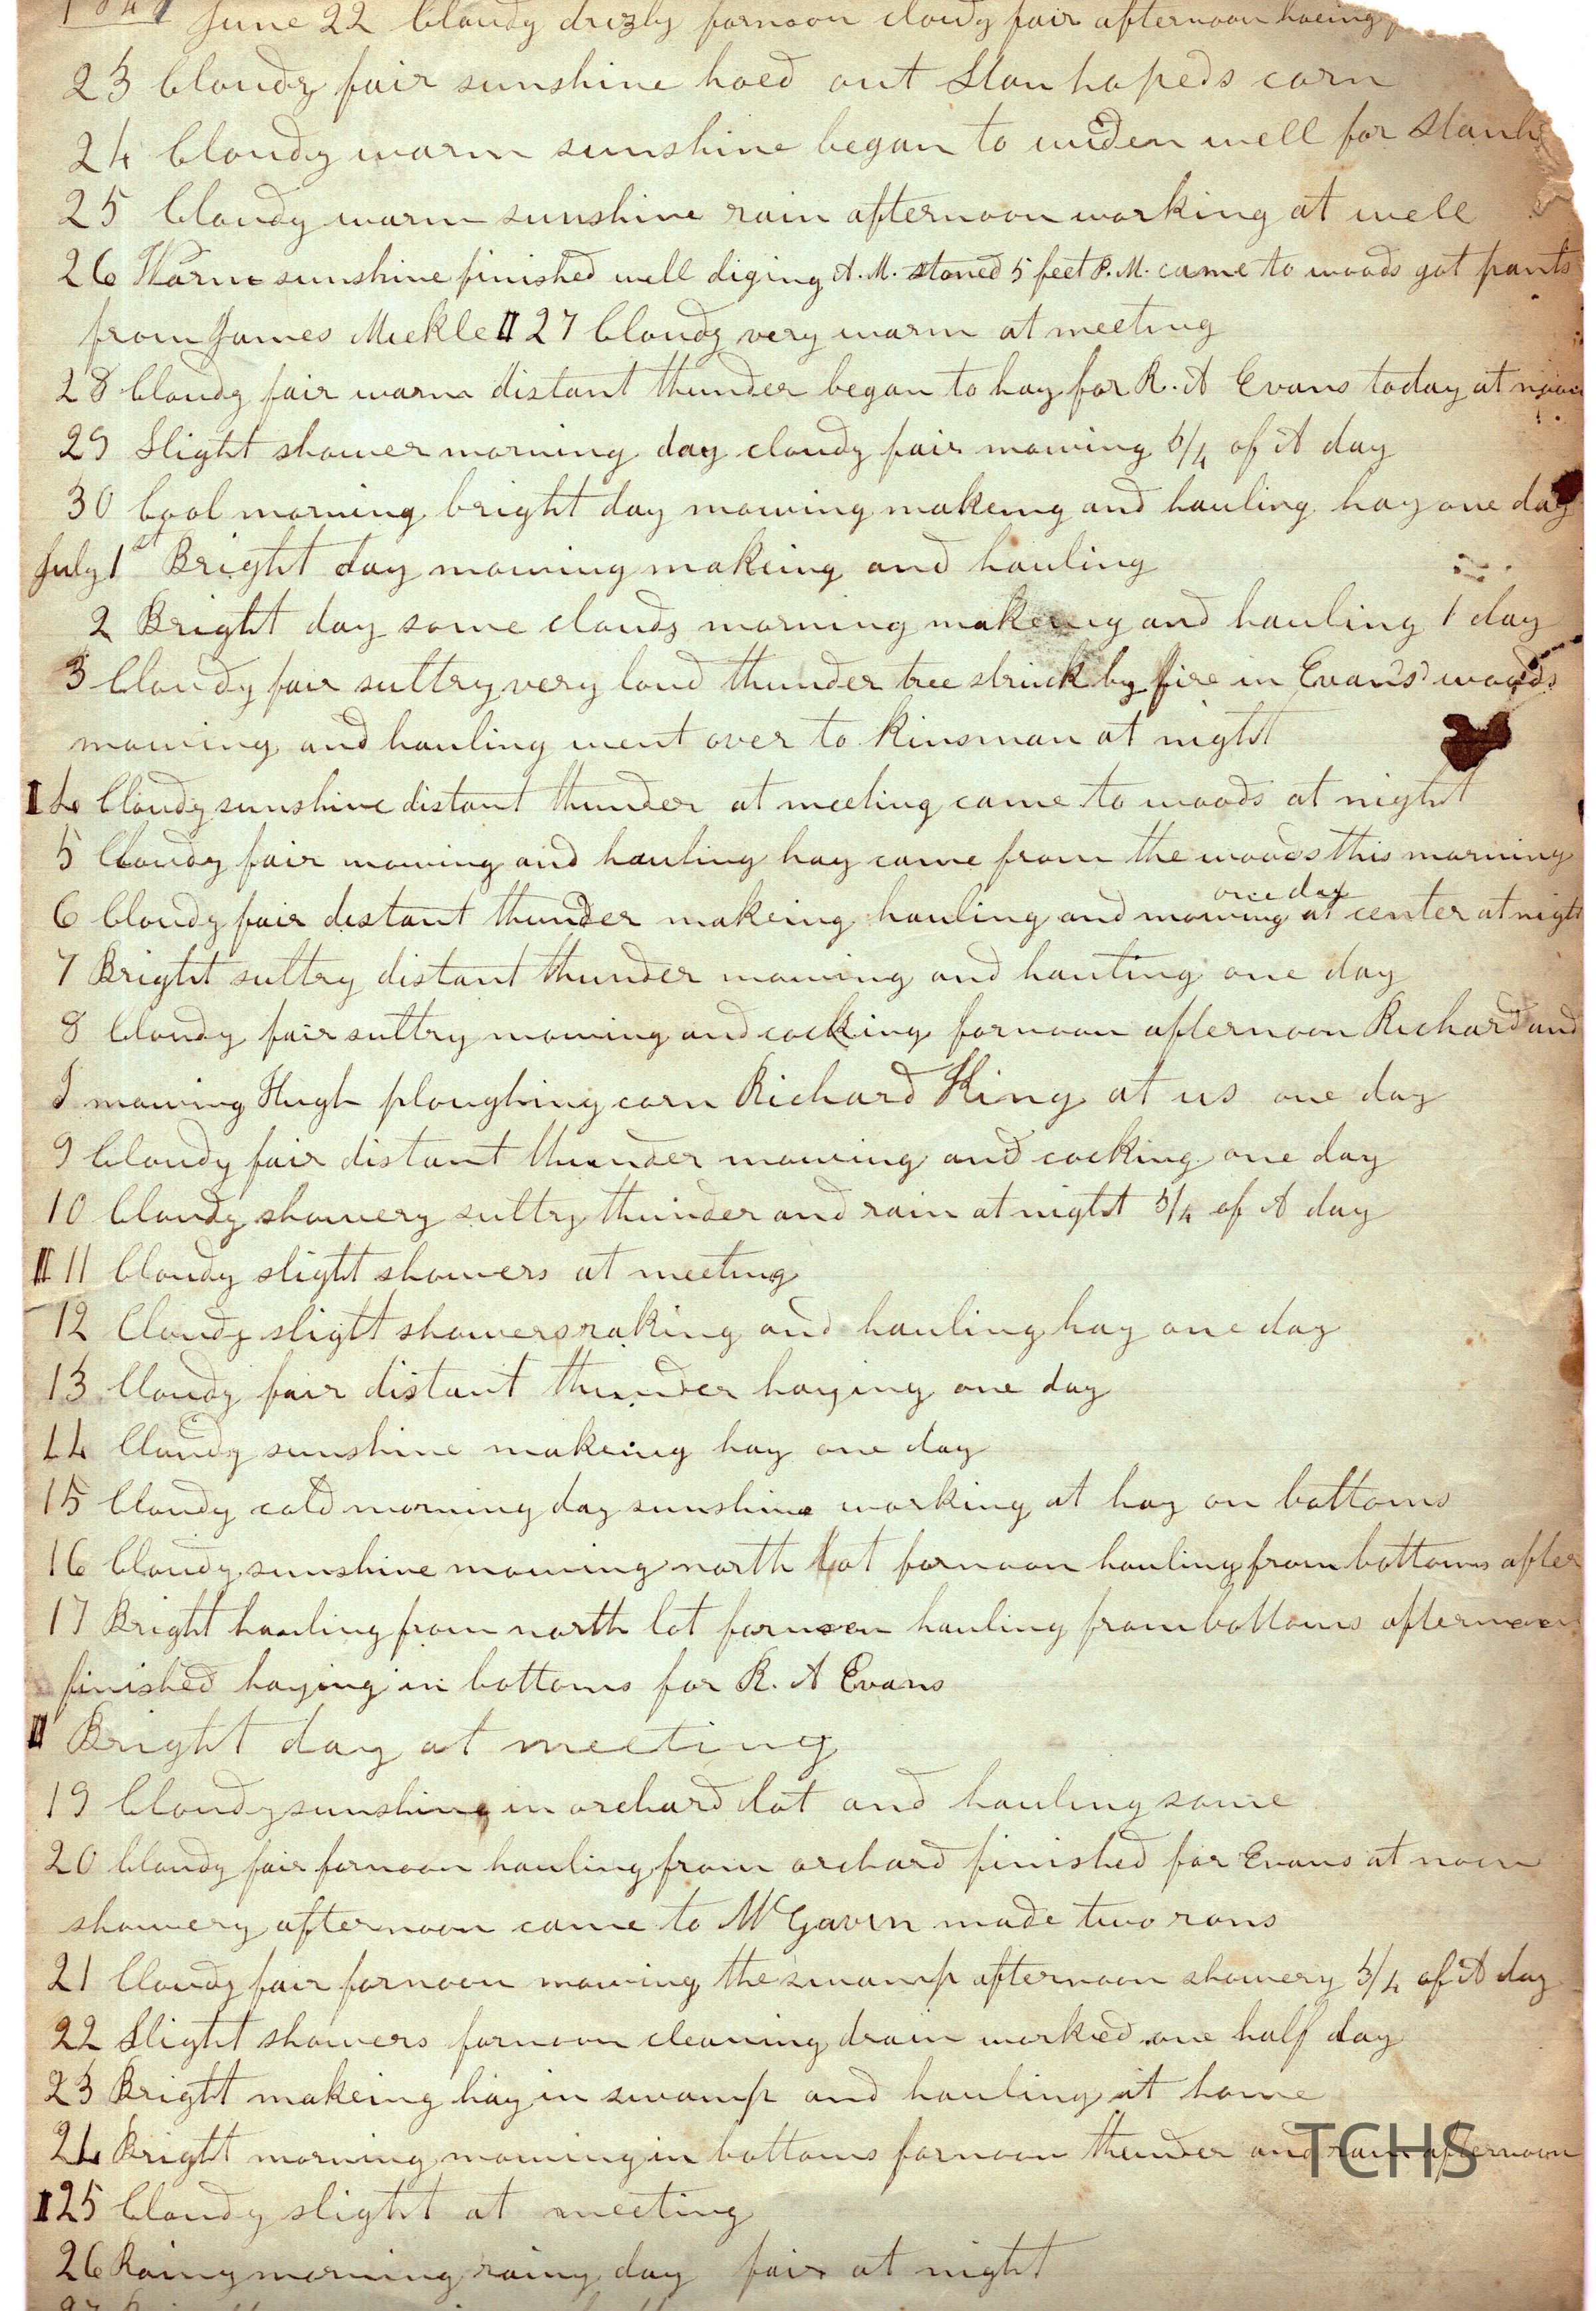 June 22 Cloudy drizly fornoon clowdy fair afternoon hoeing
23 Cloudy fair sunshine hoed out Stanhopeds corn
24 Cloudy warm sunshine began to widen well for Stanh
25 Cloudy warm sunshine rain afternoon working at well
26 Warm sunshine finished well diging A.M. stoned 5 feet P.M. came to woods got pants
from James Mickle II 27 Cloudy very warm at meeting
28 Cloudy fair warm distant thunder began to hay for R. A Evans today at noon
29 Slight shower morning day cloudy fair mowing 3/4 of A day
30 Cool morning bright day mowing makeing and hauling hay one day
July 1st Bright day mowing makeing and hauling
2 Bright day some clouds morning makeing and hauling 1 day
3 Cloudy fair sultry very loud thunder tree struck by fire in Evans's woods
mowing and hauling went over to Kinsman at night
I 4 Cloudy sunshine distant thunder at meeting came to woods at night
5 Cloudy fair mowing and hauling hay came from the woods this morning
one day
6 Cloudy fair distant thunder makeing hauling and mowing at center at night
7 Bright sultry distant thunder mowing and hauting one day
8 Cloudy fair sultry mowing and cocking fornoon afternoon Richard and
I mowing Hugh ploughing corn Richard King at us one day
9 Cloudy fair distant thunder mowing and cocking one day
10 Cloudy showery sultry thunder and rain at night 3/4 of A day
II 11 Cloudy slight showers at meeting
12 Cloudy slight showers raking and hauling hay one day
13 Cloudy fair distant thunder haying one day
14 Cloudy sunshine makeing hay one day
15 Cloudy cold morning day sunshine working at hay on bottoms
16 Cloudy sunshine mowing north lot fornoon hauling from bottoms after
17 Bright hauling from north lot fornoon hauling from bottoms afternoon
finished haying in bottoms for R. A Evans
II Bright day at meeting
19 Cloudy sunshing in orchard lot and hauling some
20 Cloudy fair fornoon hauling from orchard finished for Evans at noon
showery afternoon came to McGavin made two rons
21 Cloudy fair fornoon mowing the swamp afternoon showery 3/4 of A day
22 Slight showers fornoon cleaning drain worked one half day
23 Bright makeing hay in swamp and hauling it home
24 Bright morning mowing in bottoms fornoon thunder and rain afternoon
I 25 Cloudy slight at meeting
26 Rainy morning rainy day fair at night
TCHS